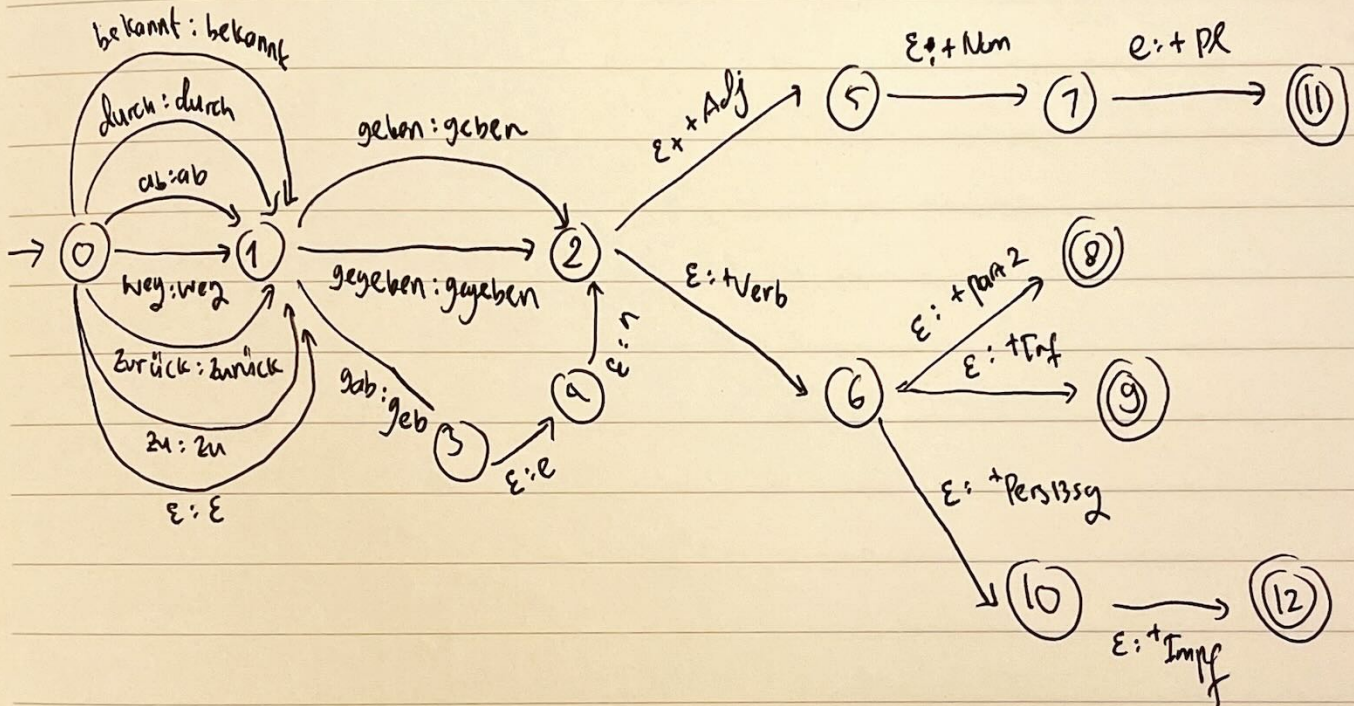 bekannt : bekannt
durch : durch
ab : ab
weg : weg
zurück : zurück
zu : zu
ε : ε
0
1
geben : geben
gegeben : gegeben
gab : geb
3
ε : e
4
ε : n
2
ε + Adj
5
ε : + Nom
7
e : + Pl
11
ε : +Verb
6
ε : +part2
8
ε : +Inf
9
ε : +Pers13sg
10
ε : +Impf
12